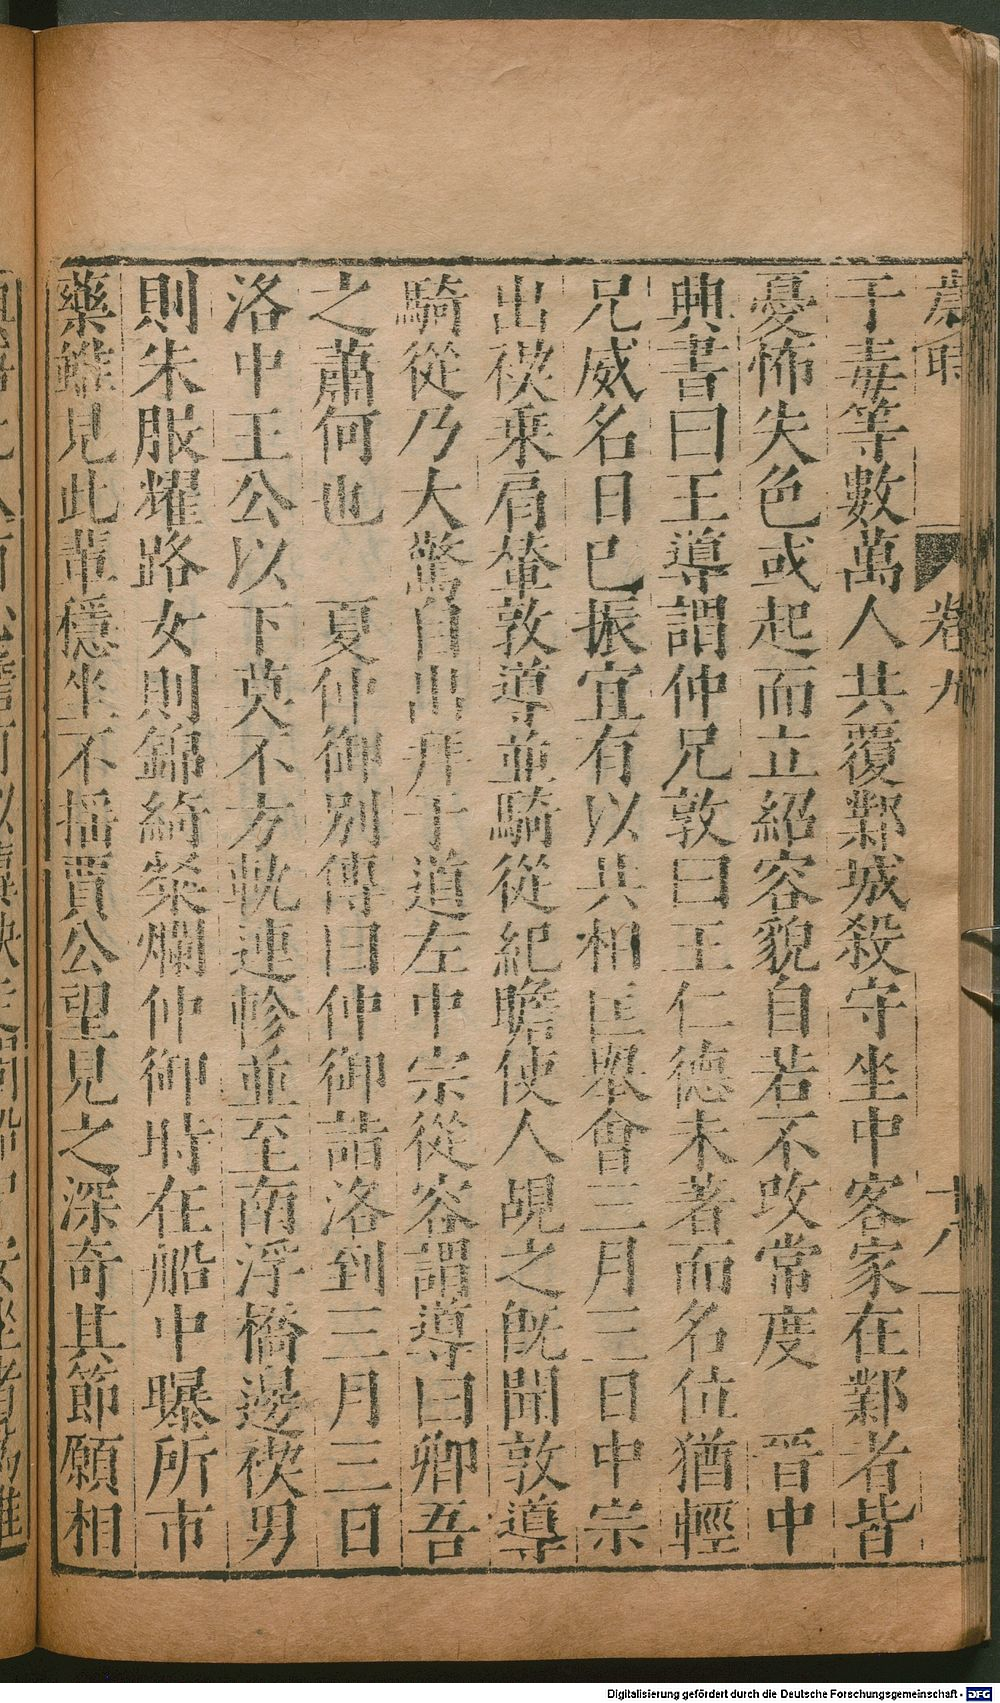 卷九
十八
于毒等數萬人共覆鄴城殺守坐中客家在鄴者皆
憂怖失色或起而立紹容貌自若不改常度　晉中
興書曰王導謂仲兄敦曰王仁德未著而名位猶輕
兄威名已振宜有以共相匡舉會三月三日中宗
出禊乘肩輦敦導並騎從紀瞻使人覘之旣聞敦導
騎從乃大驚自出拜于道左中宗從容謂導曰卿吾
之蕭何也　夏仲御別傳曰仲御詣洛到三月三日
洛中王公以下莫不方軌連軫並至南浮橋邊禊男
則朱服耀路女則錦綺粲爛仲御時在船中曝所市
藥雖見此輩穩坐不搖賈公望見之深奇其節願相
Digitalisierung gefördert durch die Deutsche Forschungsgemeinschaft - DFG